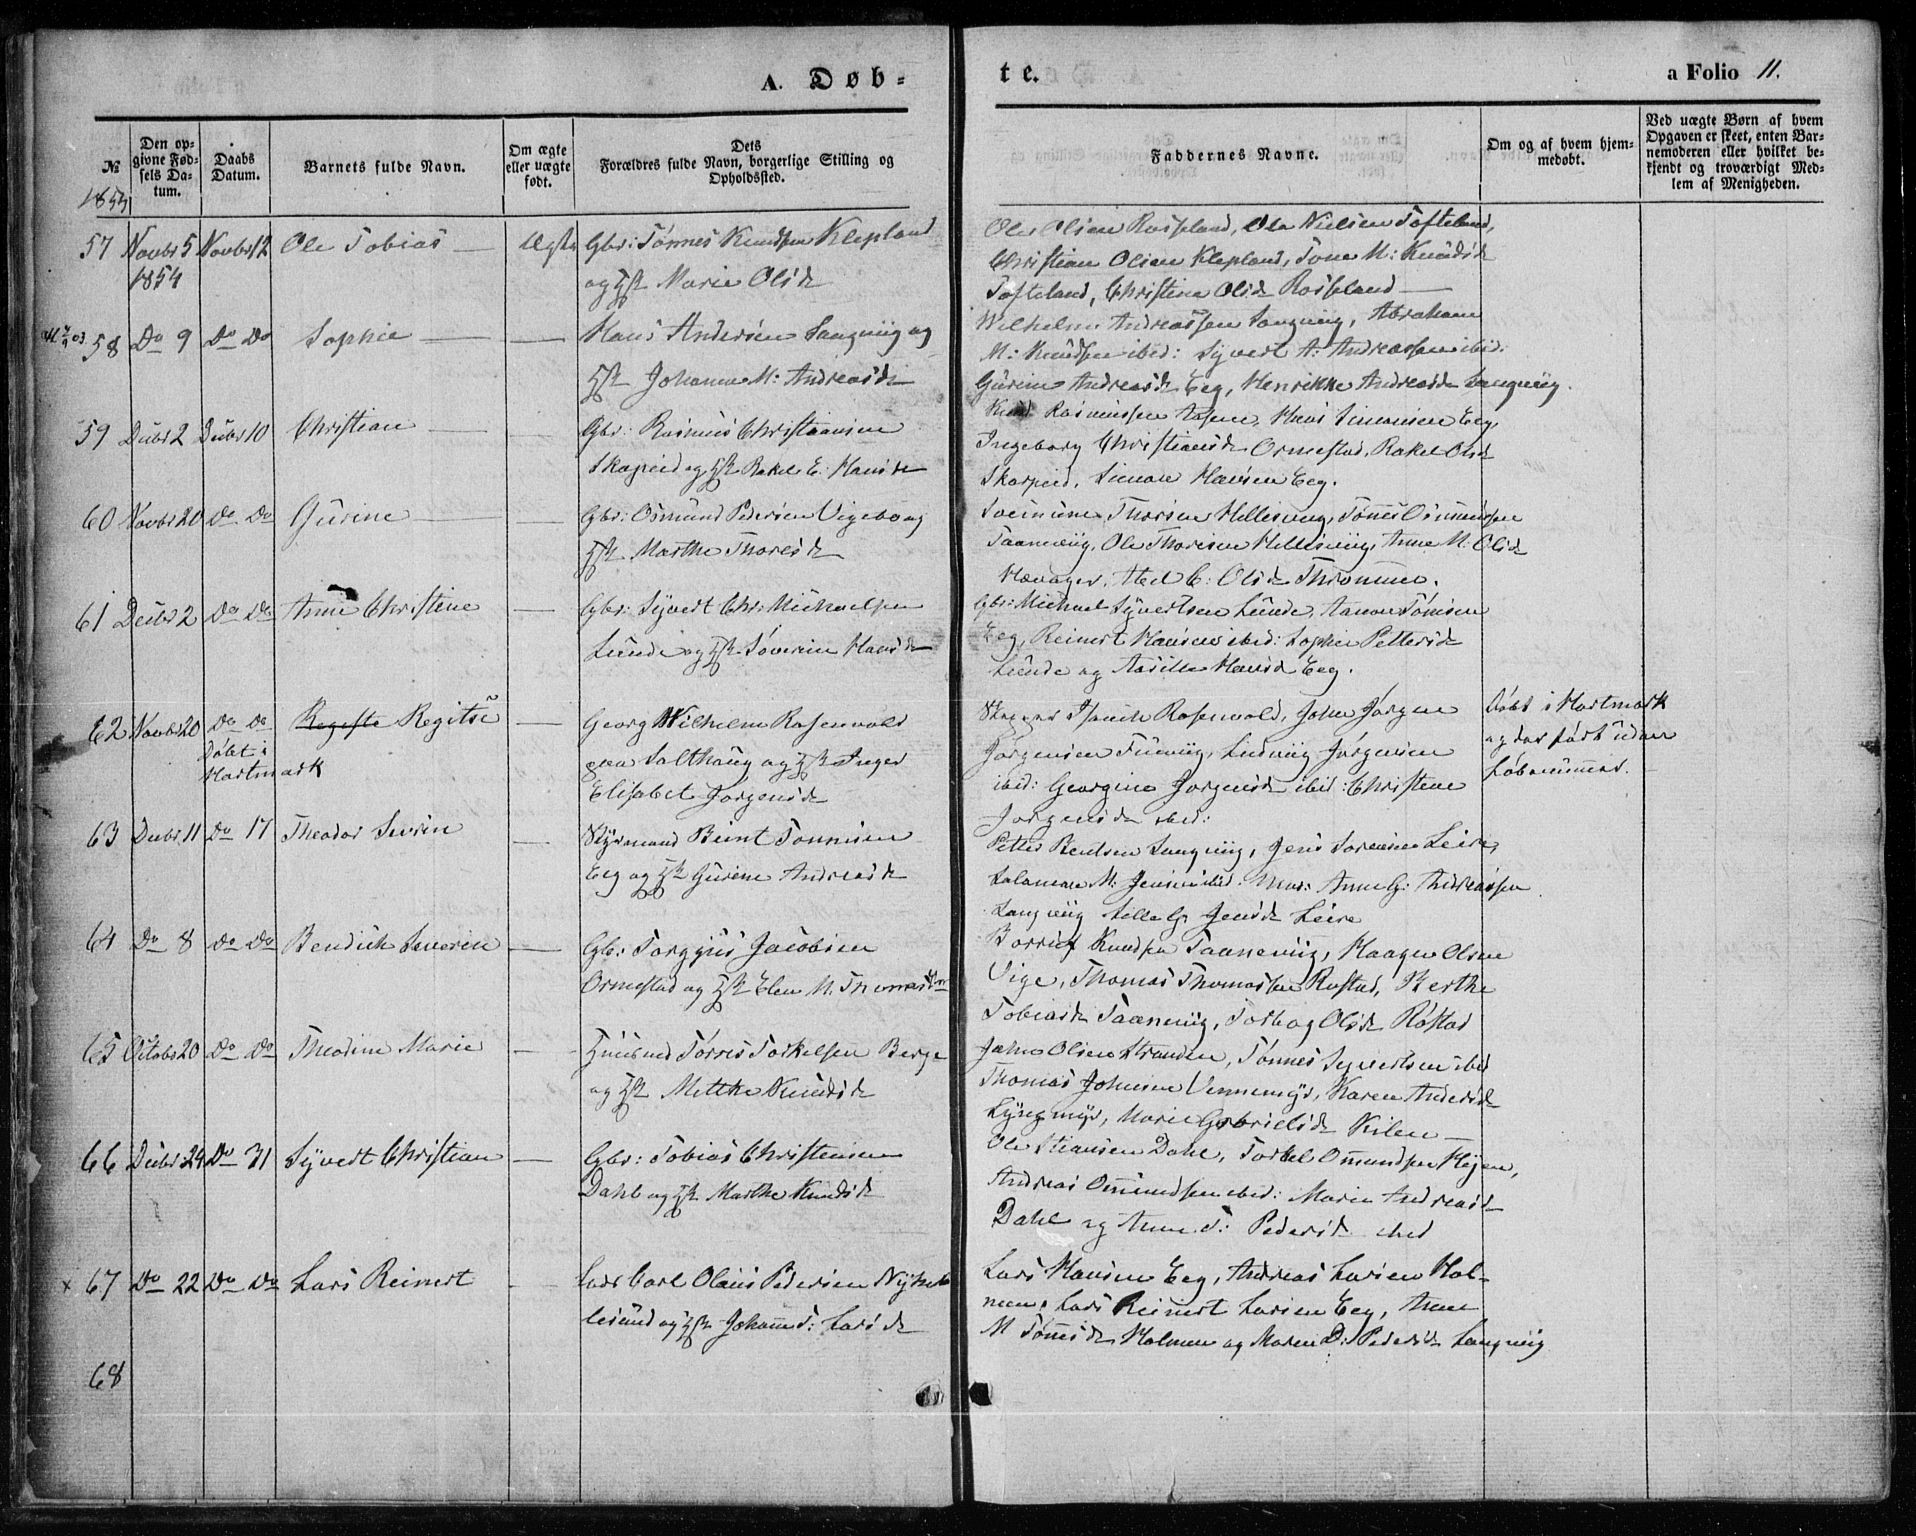 A. Døb-
te.
a Folio 11.
№
Den op-
givne Fød-
sels Da-
tum.
Daabs
Datum.
Barnets fulde Navn.
Om ægte
eller uægte
født.
Dets
Forældres fulde Navn, borgerlige Stilling og
Opholdssted.
Faddernes Navne.
Om og af hvem hjem-
medøbt.
Ved uægte Børn af hvem
Opgaven er skeet, enten Bar-
nemoderen eller hvilket be-
kjendt og troværdigt Med-
lem af Menigheden.
57 Novbr 5 Novbr 12 Ole Tobias Ægte Gbr: Tønnes Knudsen Klepland
1854 og Hst Marie Olsd
Ole Olsen Rosseland, Ole Nielsen Tofteland,
Christian Olsen Klepland, Tone M: Knudsd
Tofteland, Christine Olsd Rosseland
58 Do 9 Do Do Sophie Hans Andersen Langviig og
Hst Johanne M: Andreasd
Wilhelm Andreassen Langviig, Abraham
M: Knudsen ibid: Syvert A: Andreassen ibid:
Gurine Andreasd Eeg, Henrikke Andreasd Langviig.
59 Decbr 2 Decbr 10 Christian Gbr: Rasmus Christiansen
Skarpeid og Hst Rakel E: Hansd
Knud Rasmussen Aasene, Hans Simonsen Eeg,
Ingeborg Christiansd Ormestad, Rakel Olsd
Skarpeid, Simon Hansen Eeg.
60 Novbr 20 Do Do Gurine Gbr: Osmund Pedersen Vigebo og
Hst Marthe Thoresd
Thorsen Hillesviig, Tønnes Osmundsen
Taaneviig, Ole Thorsen Hillesviig, Anne M: Olsd
Hævager, Abel C: Olsd Thrommen.
61 Decbr 2 Do Do Anne Christine Gbr: Syvert Chr: Michaelsen
Lunde og Hst Søverine Hansd
Gbr: Michael Syvertsen Lunde, Aanon Tønnesen
Eeg, Reinert Hansen ibid: Sophie Pettersd
Lunde og Aasille Hansd Eeg.
62 Novbr 20 Do Do Regeste Regitse Georg Wilhelm Rosenvold
Døbt i
Hartmark
paa Salthaug og Hst Inger
Elisabet Jørgensd
Rosenvold, John Jørgen
Jørgensen Tueviig, Ludvig Jørgensen
ibid: Georgine Jørgensd ibid: Christine
Jørgensd ibid:
Døbt i Hartmark
og der ført uden
Løbenummer.
63 Decbr 11 Do 17 Theodor Severin Styrmand Beint Tønnesen
Eeg og Hst Gurine Andreasd
Petter Bentsen Langviig, Jens Sørensen Leire,
Salomon M: Jensen ibid: Mad: Anne G: Andreassen
Langviig Sille G: Jensd Leire
64 Do 8 Do Do Bendich Severin Gbr: Torgjus Jacobsen
Ormestad og Hst Elen M: Thomasd
Børrius Knudsen Taaneviig, Haagen Olsen
Vige, Thomas Thomassen Rostad, Berthe
Tobiasd Taaneviig, Torborg Olsd Røstad
65 Octobr 20 Do Do Theodine Marie Huusmd Torres Torkelsen Berge
og Hst Mettke Knudsd
John Olsen Stranden, Tønnes Syvertsen ibid
Thomas Johnsen Vennemyr, Karen Andersd
Lyngmyr, Marie Gabrielsd Kilen
66 Decbr 24 Do 31 Syvert Christian Gbr: Tobias Christensen
Dahl og Hst Marthe Knudsd
Ole Stiansen Dahl, Torkel Omundsen Høyen,
Andreas Omundsen ibid: Marie Andreasd
Dahl og Anne T: Pedersd ibid
x 67 Do 22 Do Do Lars Reinert Carl Olaus Pedersen
og Hst Johanne S: Larsd
Lars Hansen Eeg, Andreas Larsen Hol-
men, Lars Reinert Larsen Eeg, Anne
M Tønnesd Holmen og Maren D: Pedersd Langviig
68